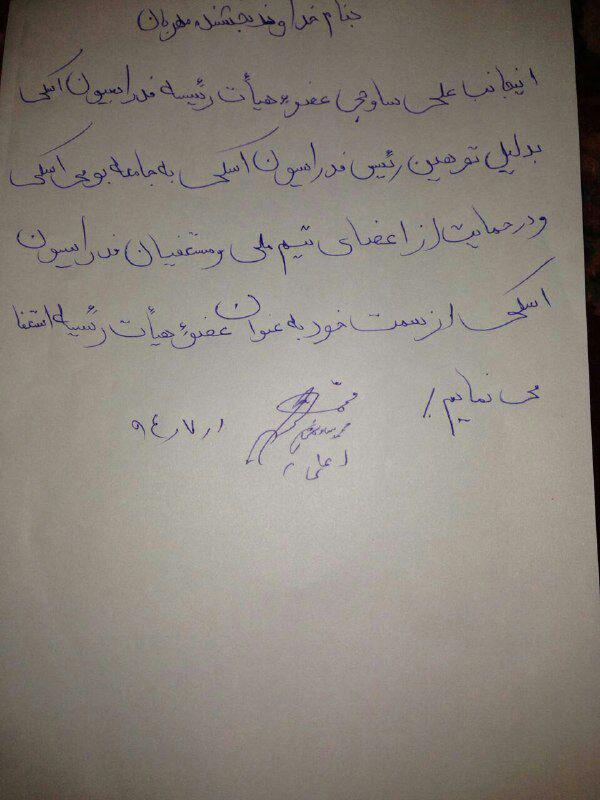 بنام خداوند بخشنده مهربان
اینجانب علی ساوجی عضو هیأت رئیسه فدراسیون اسکی
بدلیل توهین رئیس فدراسیون اسکی به جامعه بومی اسکی
و در حمایت از اعضای تیم ملی و مستعفیان فدراسیون
اسکی از سمت خود به عنوان عضو هیأت رئیسه استعفا
می نمایم ./
۹٤٫۷٫۱